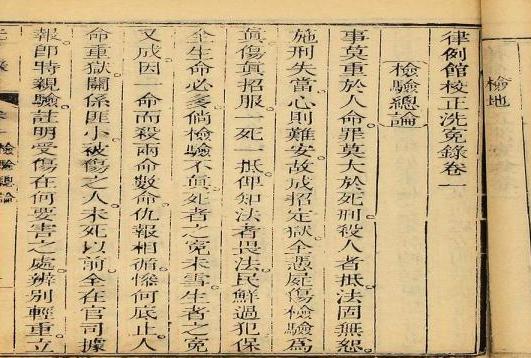 檢地
律例館校正洗冤錄卷一
檢驗總論
事莫重於人命罪莫大於死刑殺人者抵法固無怨
施刑失當心則難安故成招定獄全憑屍傷檢驗為
眞傷眞招服一死一抵俾知法者畏法民鮮過犯保
全生命必多倘檢驗不眞死者之冤未雪生者之冤
又成因一命而殺兩命數命仇報相循慘何底止人
命重獄關係匪小被傷之人未死以前全在官司據
報卽時親驗註明受傷在何要害之處辨別輕重立
檢驗總論